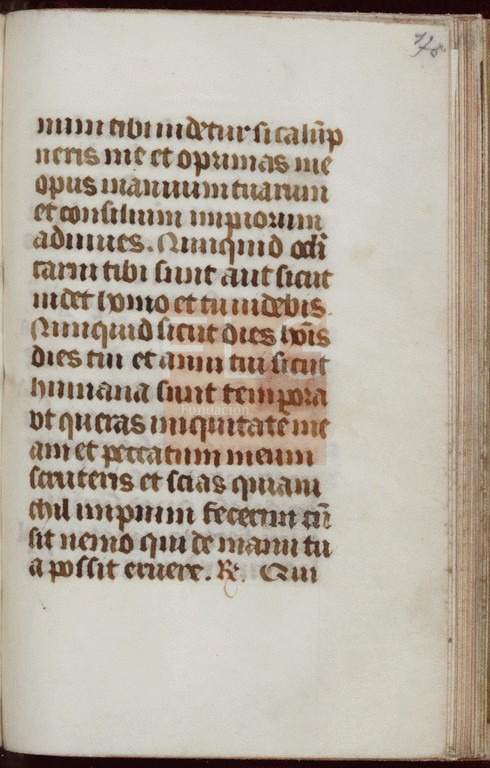 78
num tibi uidetur si calūp
neris me et oprimas me
opus manuum tuarum
et consilium impiorum
adiuues. Nunquid oculi
carni tibi sunt aut sicut
uidet homo et tu uidebis.
Nunquid sicut dies hoīs
dies tui et anni tui sicut
humana sunt tempora
vt queras iniquitatē me
am et peccatum meum
scruteris et scias quia ni
chil impium fecerim cū
sit nemo qui de manu tu
a possit eruere. R. Qui
Fundación